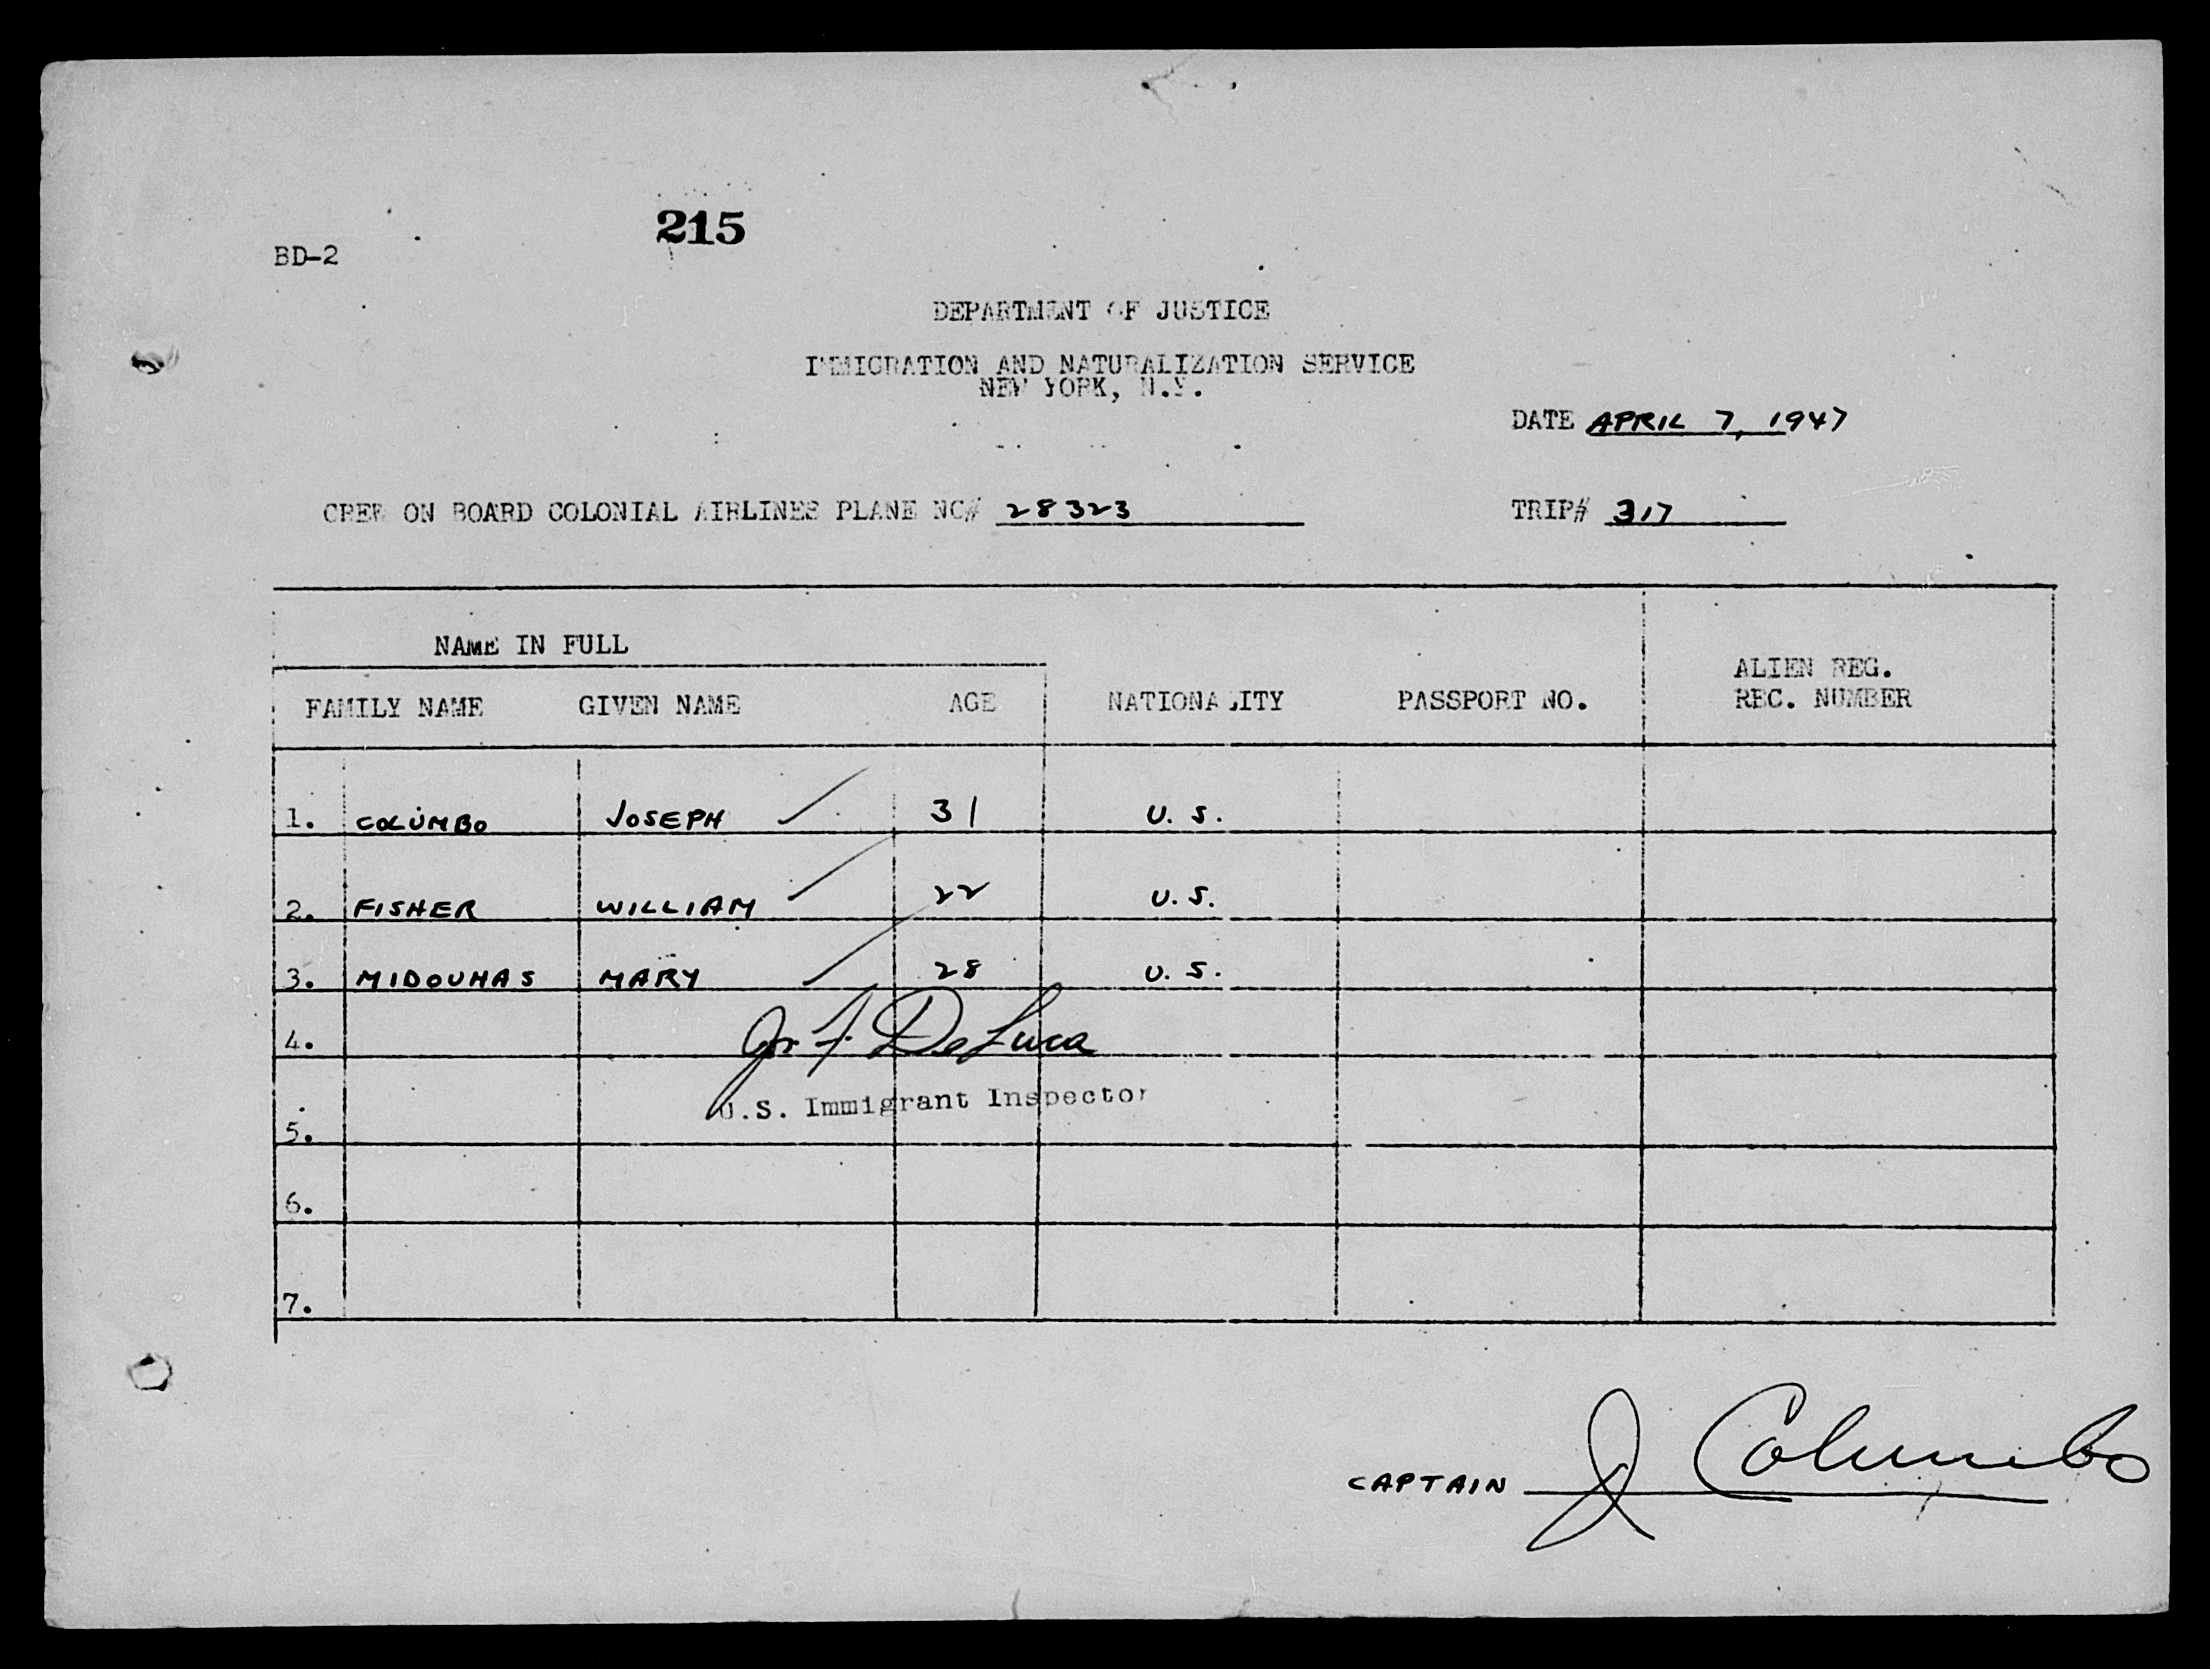 215
BD-2
DEPARTMENT OF JUSTICE
IMMIGRATION AND NATURALIZATION SERVICE
NEW YORK, N.Y.
DATE APRIL 7, 1947
CREW ON BOARD COLONIAL AIRLINES PLANE NC# 28323 TRIP# 317
NAME IN FULL
ALIEN REG.
FAMILY NAME GIVEN NAME AGE NATIONALITY PASSPORT NO. REC. NUMBER
1. COLUMBO JOSEPH 31 U. S.
2. FISHER WILLIAM 22 U. S.
3. MIDOUHAS MARY 28 U. S.
4. F. DeLuca
U.S. Immigrant Inspector
5.
6.
7.
CAPTAIN J Columbo